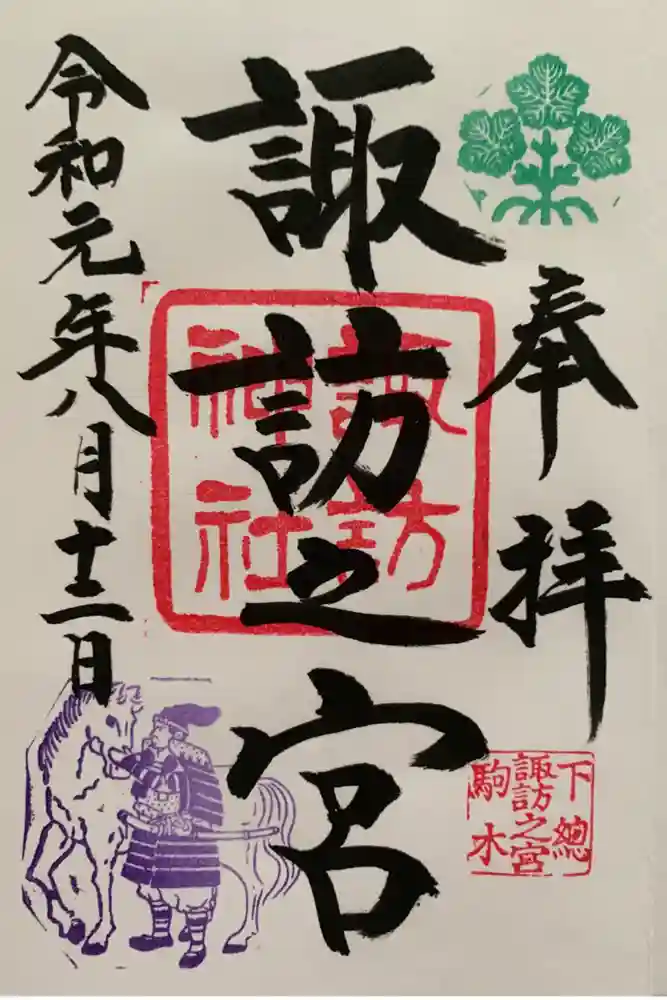 奉拝
諏訪之宮
諏訪
神社
下總
諏訪之宮
駒木
令和元年八月十二日